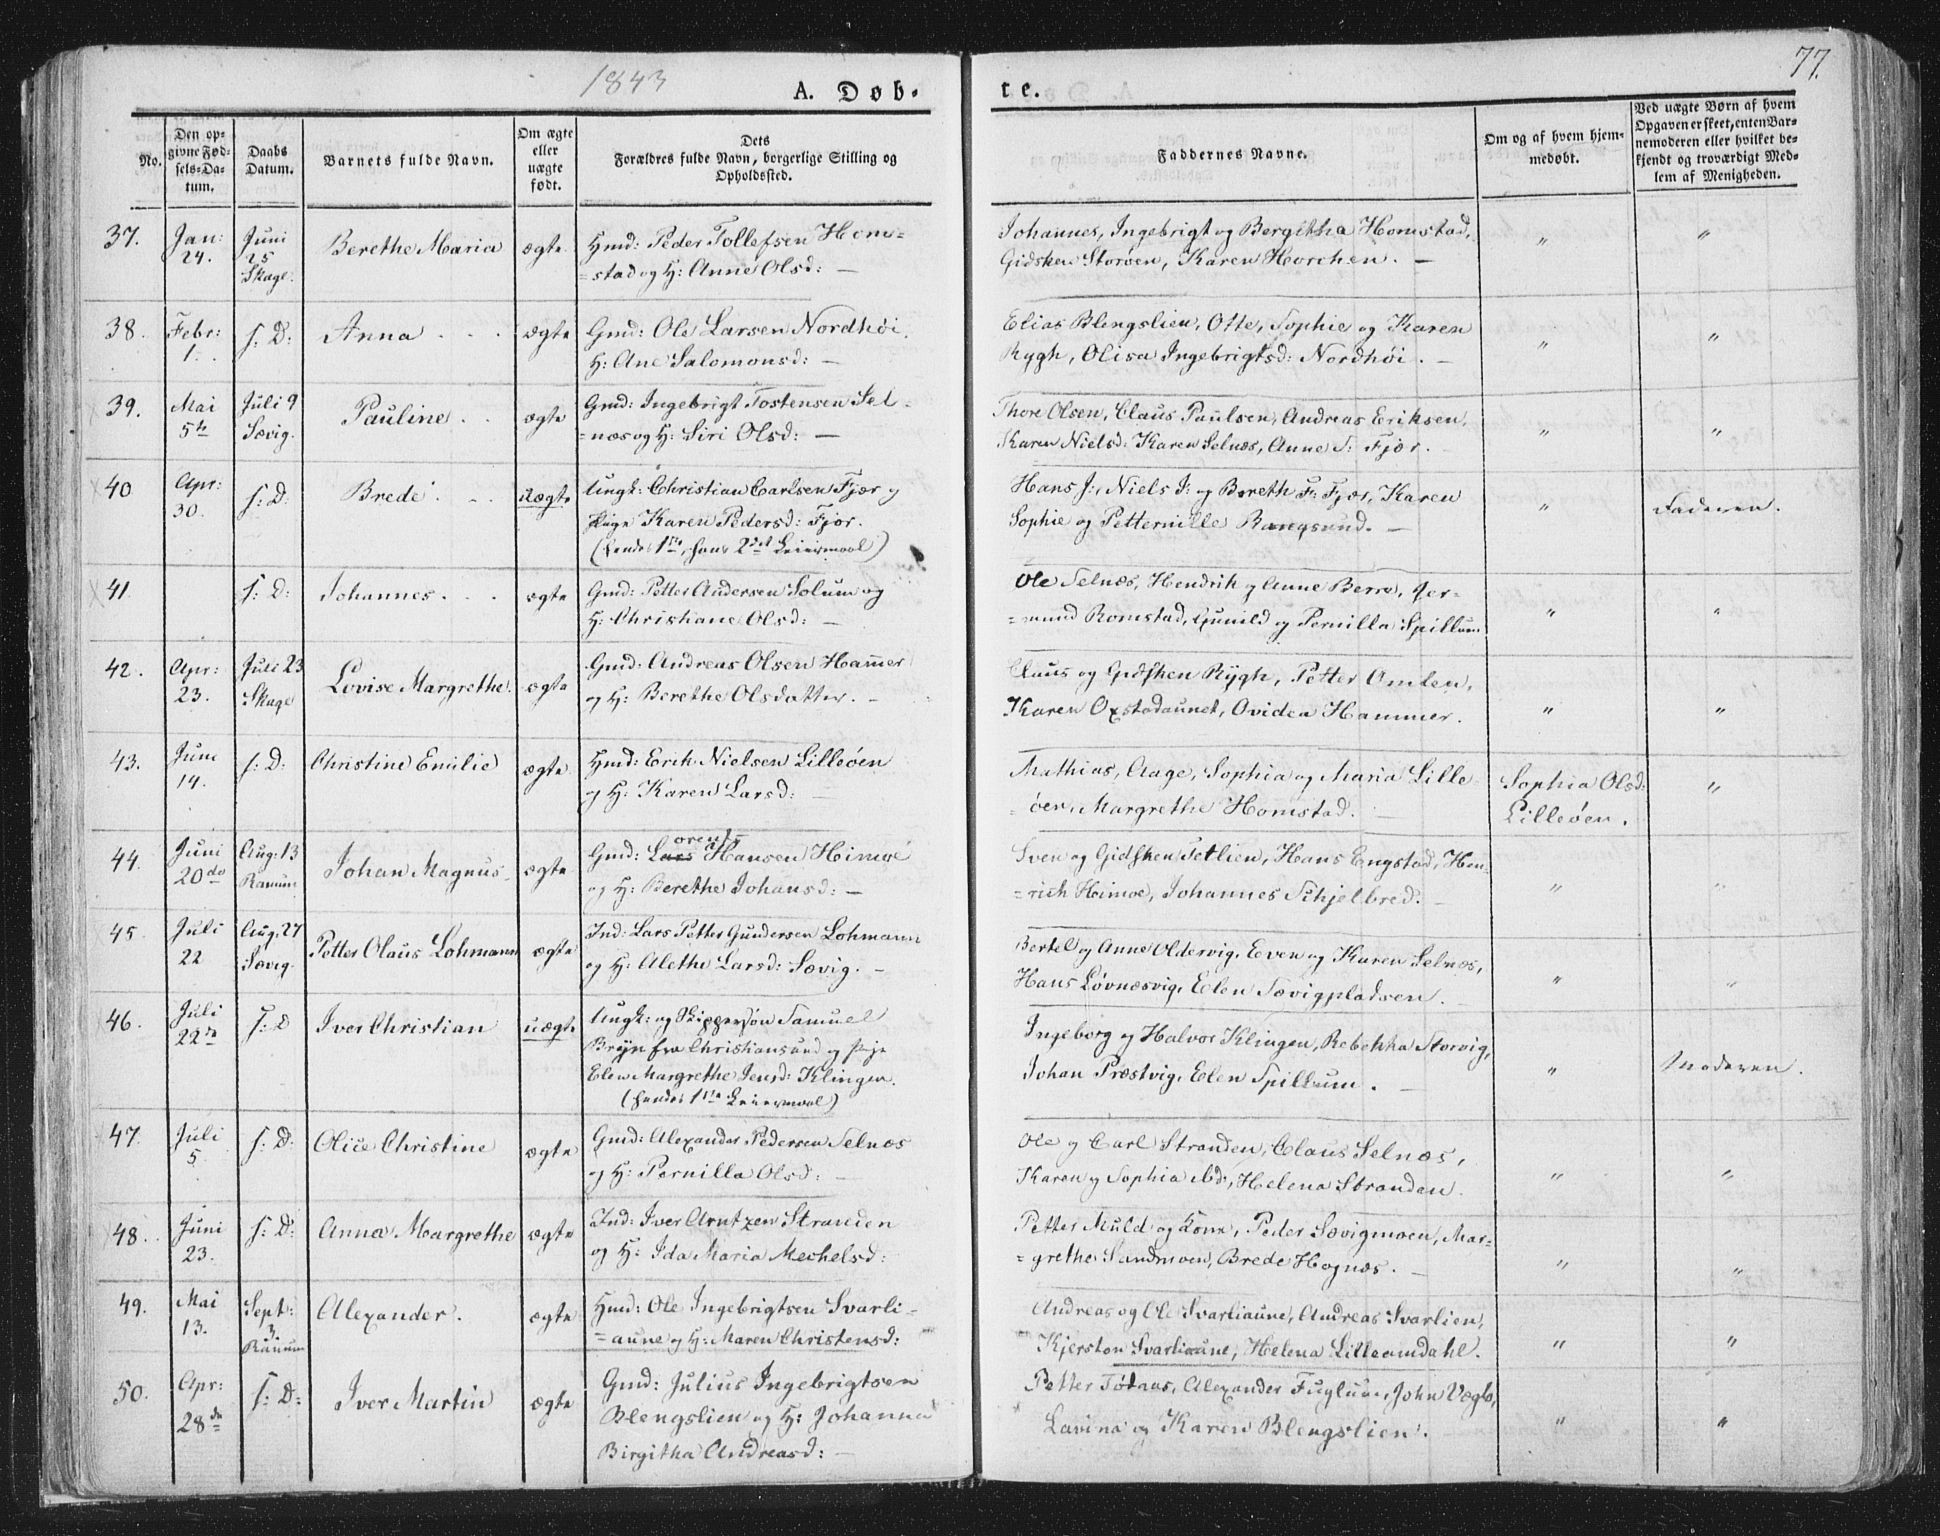 77.
1843
A. Døb-
te.
No.
Den op-
givne Fød-
sels-Da-
tum.
Daabs
Datum.
Barnets fulde Navn.
Om ægte
eller
uægte
født.
Dets
Forældres fulde Navn, borgerlige Stilling og
Opholdssted.
Faddernes Navne.
Om og af hvem hjem-
medøbt.
Ved uægte Børn af hvem
Opgaven er skeet, enten Bar-
nemoderen eller hvilket be-
kjendt og troværdigt Med-
lem af Menigheden.
37. Jan: 24. Juni 25 Skage. Berethe Maria ægte Hmd: Peder Tollefsen Hom=
=stad og H: Anne Olsd: —
Johannes, Ingebrigt og Bergitha Homstad,
Gidsken Storøen, Karen Horchen. — " "
38. Febr: 1. s: D: Anna ægte Gmd: Ole Larsen Nordhøi.
H: Ane Salomonsd: —
Elias Blengslien, Otte, Sophie og Karen
Rygh, Olisa Ingebrigtsd: Nordhøi. — " "
39. Mai 5te Juli 9 Sævig. Pauline ægte Gmd: Ingebrigt Tostensen Sel=
=næs og H: Siri Olsd: —
Thore Olsen, Claus Paulsen, Andreas Eriksen,
Karen Nielsd: Karen Selnæs, Anne S: Fjær. " "
40 Apr: 30. s: D: Brede uægte Ungk: Christian Carlsen Fjær og
Pige Karen Pedersd: Fjær.
(hendes 1ste, hans 2det Leiermaal)
Hans J:, Niels J: og Bereth F: Fjær, Karen
Sophie og Petternille Rangsund. — " Faderen.
41. s: D: Johannes ægte Gmd: Petter Andersen Solum og
H: Christiane Olsd: —
Ole Selnæs, Hendrik og Anne Berre, Ger=
=mund Romstad, Gunild og Pernilla Spillum " "
42. Apr: 23. Juli 23 Skage Lovise Margrethe. ægte Gmd: Andreas Olsen Hammer
og H: Berethe Olsdatter. —
Claus og Gidsken Rygh, Petter Amlen,
Karen Oxstadaunet, Ovidea Hammer. " "
43. Juni 14. s: D: Christine Emilie ægte Hmd: Erik Nielsen Lilleøen
og H: Karen Larsd: —
Mathias, Aage, Sophia og Maria Lille=
=øen, Margrethe Homstad. Sophia Olsd:
Lilleøen. "
44. Juni 20de Aug: 13 Ranum Johan Magnus ægte Gmd: Lars orents Hansen Himoe
og H: Berethe Johansd: —
Sven og Gidsken Setlien, Hans Engstad, Hen=
=rich Heimoe, Johannes Schjelbred. " "
45 Juli 22 Aug: 27 Sævig. Petter Olaus Lohmann ægte Ind: Lars Petter Gundersen Lohmann
og H: Alethe Larsd: Sævig. —
Bertel og Anne Oldervig, Even og Karen Selnæs,
Hans Løvnæsvig, Elen Sævigpladsen. " "
46. Juli 22de s: D Iver Christian uægte Ungk: og Skippersøn Samuel
Bryn fra Christiansund og Pige
Elen Margrethe Jensd: Klingen.
(hendes 1ste Leiermaal)
Ingeborg og Halvor Klingen, Rebekka Storvig,
Johan Præstvig, Elen Spillum. — " Moderen.
47. Juli 5 s: D: Olice Christine ægte Gmd: Alexander Pedersen Selnæs
og H: Pernilla Olsd: —
Ole og Carl Stranden, Claus Selnæs,
Karen og Sophia ibd:, Helena Stranden. " "
48. Juni 23. s: D: Anna Margrethe ægte Ind: Iver Arntzen Stranden
og H: Ida Maria Mechelsd:
Petter Muld og Kone, Peder Sævigmoen, Mar=
=grethe Sandmoen, Brede Hognæs. — " "
49. Mai 13. Sept: 3. Ranum Alexander. ægte Hmd: Ole Ingebrigtsen Svarli=
=aune og H: Maren Christensd:
Andreas og Ole Svarliaune, Andreas Svarlien,
Kjersten Svarliaune, Helena Lilleamdahl. " "
50. Apr: 28de s: D: Iver Martin ægte Gmd: Julius Ingebrigtsen
Blengslien og H: Johanna
Birgitha Andreasd: —
Petter Tøtaas, Alexander Fuglum, John Vegla,
Lavina og Karen Blengslien. " "